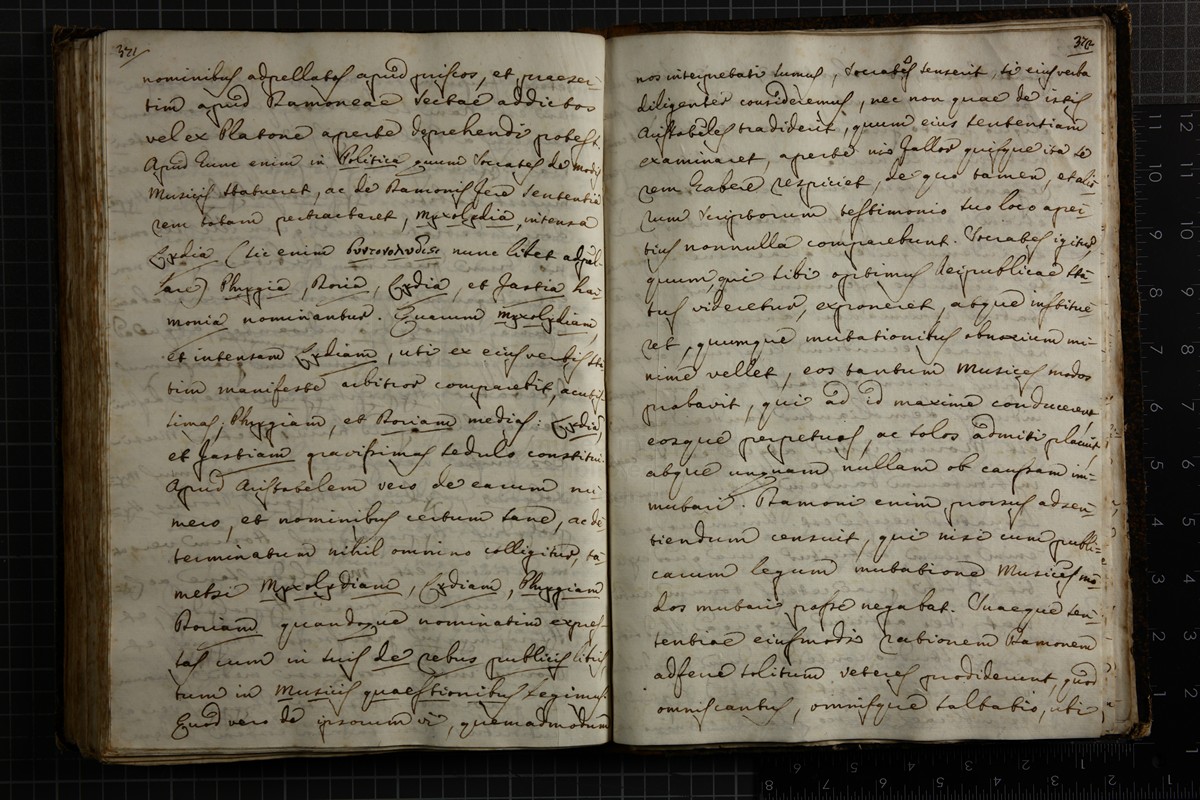 371
nominibus adpellatos apud priscos, et praeser-
tim apud Damoneae sectae addictos
vel ex Platone aperte deprehendi potest.
Apud hunc enim in Politica quum Socrates de modis
Musicis statueret, ac de Damonis fere sententia
rem totam pertractaret, myxolydia, intensa
Lydia (sic enim συντονολυδιςι nunc libet adpel-
lare) Phrygia, Doria, Lydia, et Jastia har-
monia nominantur. Quarum myxolydiam,
et intensam Lydiam, uti ex eius verbis sta-
tim manifeste arbitror comparebit, acutis-
simas; Phrygiam, et Doriam medias: Lydiam,
et Jastiam gravissimas sedulo constitui.
Apud Aristotelem vero de earum nu-
mero, et nominibus certum sane, ac de-
terminatum nihil omnino colligitur, ta-
metsi Myxolydiam, Lydiam, Phrygiam
Doriam quandoque nominatim expres-
sas cum in suis de rebus publicis libris
tum in Musicis quaestionibus legimus.
Quod vero de ipsorum vi, quemadmodum
370
nos interpretati sumus, Socrates senserit, si eius verba
diligenter consideremus, nec non quae de istis
Aristoteles tradiderit, quum eius sententiam
examinaret, aperte nis fallor quisque ita se
rem habere respiciet, de quo tamen, et alio-
rum scriptorum testimonio suo loco aper-
tius nonnulla comparebunt. Socrates igitur,
quum, qui sibi optimus Reipublicae sta-
tus videretur, exponeret, atque institue-
ret, quumque mutationibus obnoxium mi-
nime vellet, eos tantum Musices modos
probavit, qui ad id maxime conducerent
eosque perpetuos, ac solos admitti placuit,
atque unquam nullam ob caussam im-
mutari. Damoni enim prorsus adsen-
tiendum censuit, qui nisi cum publi-
carum legum mutatione Musices mo-
dos mutari posse negabat. Quaeque sen-
tentiae eiusmodi rationem Damonem
adferre solitum veteres prodiderunt, quod
omnis cantus, omnisque saltatio, uti